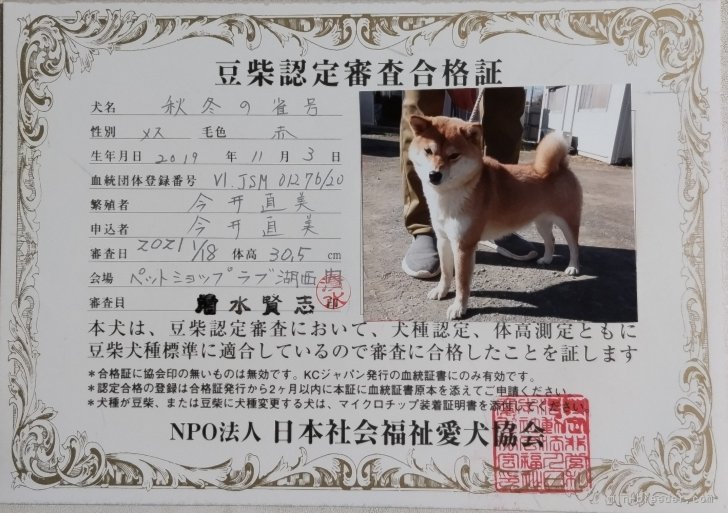 豆柴認定審査合格証
犬名 秋冬の雀号
性別 メス 毛色 赤
生年月日 2019 年 11 月 3 日
血統団体登録番号 VI.JSM 01276/20
繁殖者 今井直美
申込者 今井直美
審査日 2021 1/18 体高 30.5 cm
会場 ペットショップラブ湖西
審査員 水賢志
本犬は、豆柴認定審査において、犬種認定、体高測定ともに
豆柴犬種標準に適合しているので審査に合格したことを証します
*合格証に協会印の無いものは無効です。KCジャパン発行の血統証書にのみ有効です。
*認定合格の登録は合格証発行から2ヶ月以内に本証に血統証書原本を添えてご申請ください。
*犬種が豆柴、または豆柴に犬種変更する犬は、マイクロチップ装着証明書を添付してください。
NPO法人 日本社会福祉愛犬協会